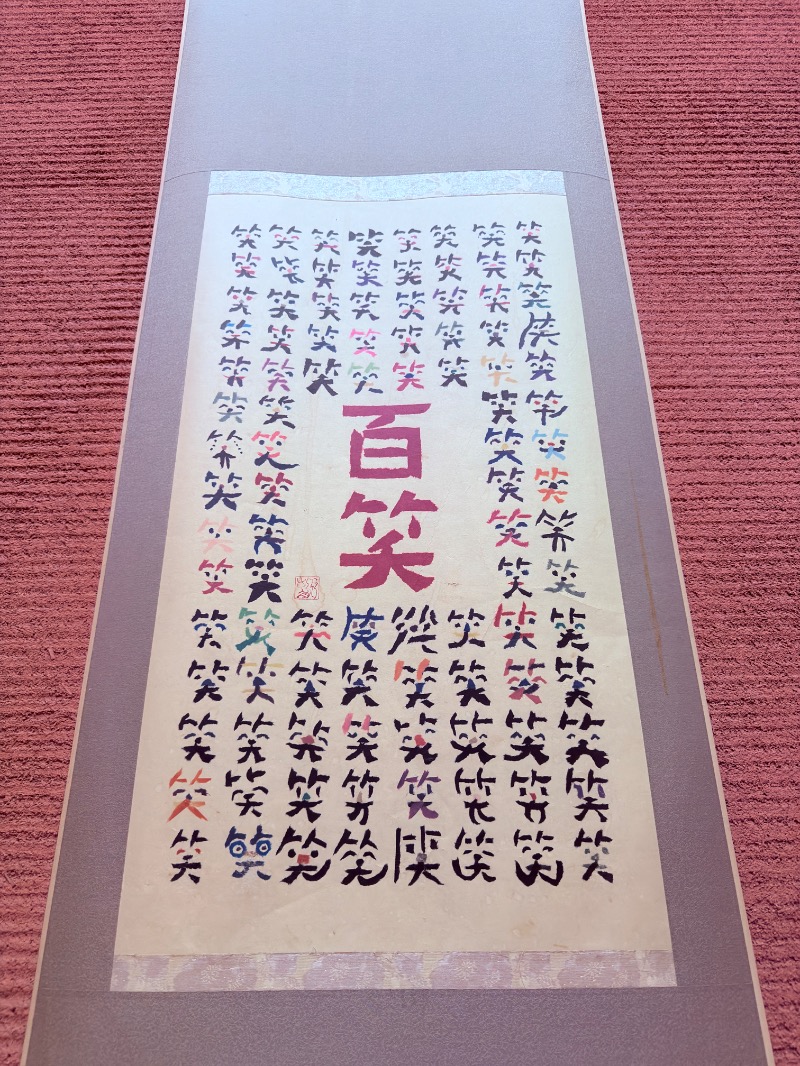 笑笑笑笑笑笑笑笑
笑笑笑笑笑笑笑笑
笑笑笑笑笑笑笑笑
笑笑笑笑笑笑笑笑
笑笑笑笑笑笑笑笑
百笑
笑笑笑笑
笑笑笑笑
笑笑笑笑
笑笑笑笑
笑笑笑笑
笑笑笑笑笑笑笑笑
笑笑笑笑笑笑笑笑
笑笑笑笑笑笑笑笑
笑笑笑笑笑笑笑笑
笑笑笑笑笑笑笑笑